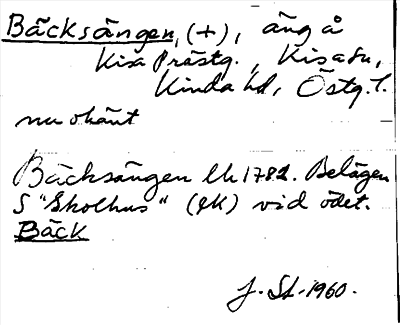 Bäcksängen, (+), äng å
Kisa Prästg., Kisa sn,
Kinda hd, Östg. l.
nu okänt
Bäcksängen lh 1782. Belägen
S "Skolhus" (EK) vid ödet.
Bäck
J. St. 1960.